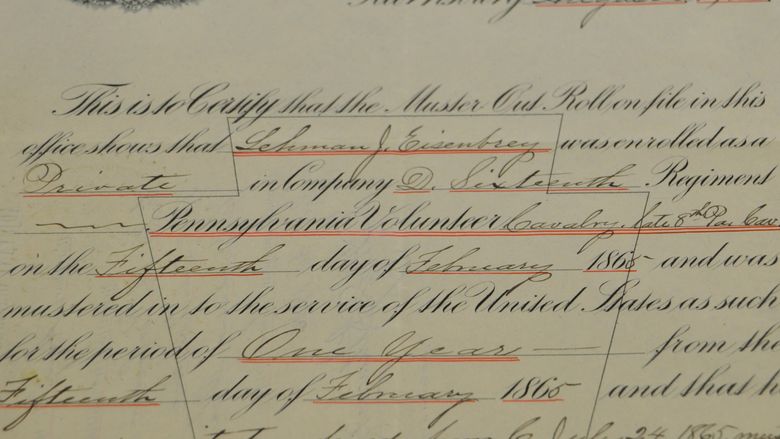 Harrisburg
This is to Certify that the Muster Out Roll on file in this
office shows that Lehman J. Eisenbrey was enrolled as a
Private in Company D. Sixteenth Regiment
Pennsylvania Volunteer Cavalry, late 8th Pa. Cav
on the Fifteenth day of February 1865 and was
mustered in to the service of the United States as such
for the period of One Year from the
Fifteenth day of February 1865 and that h
24 1865